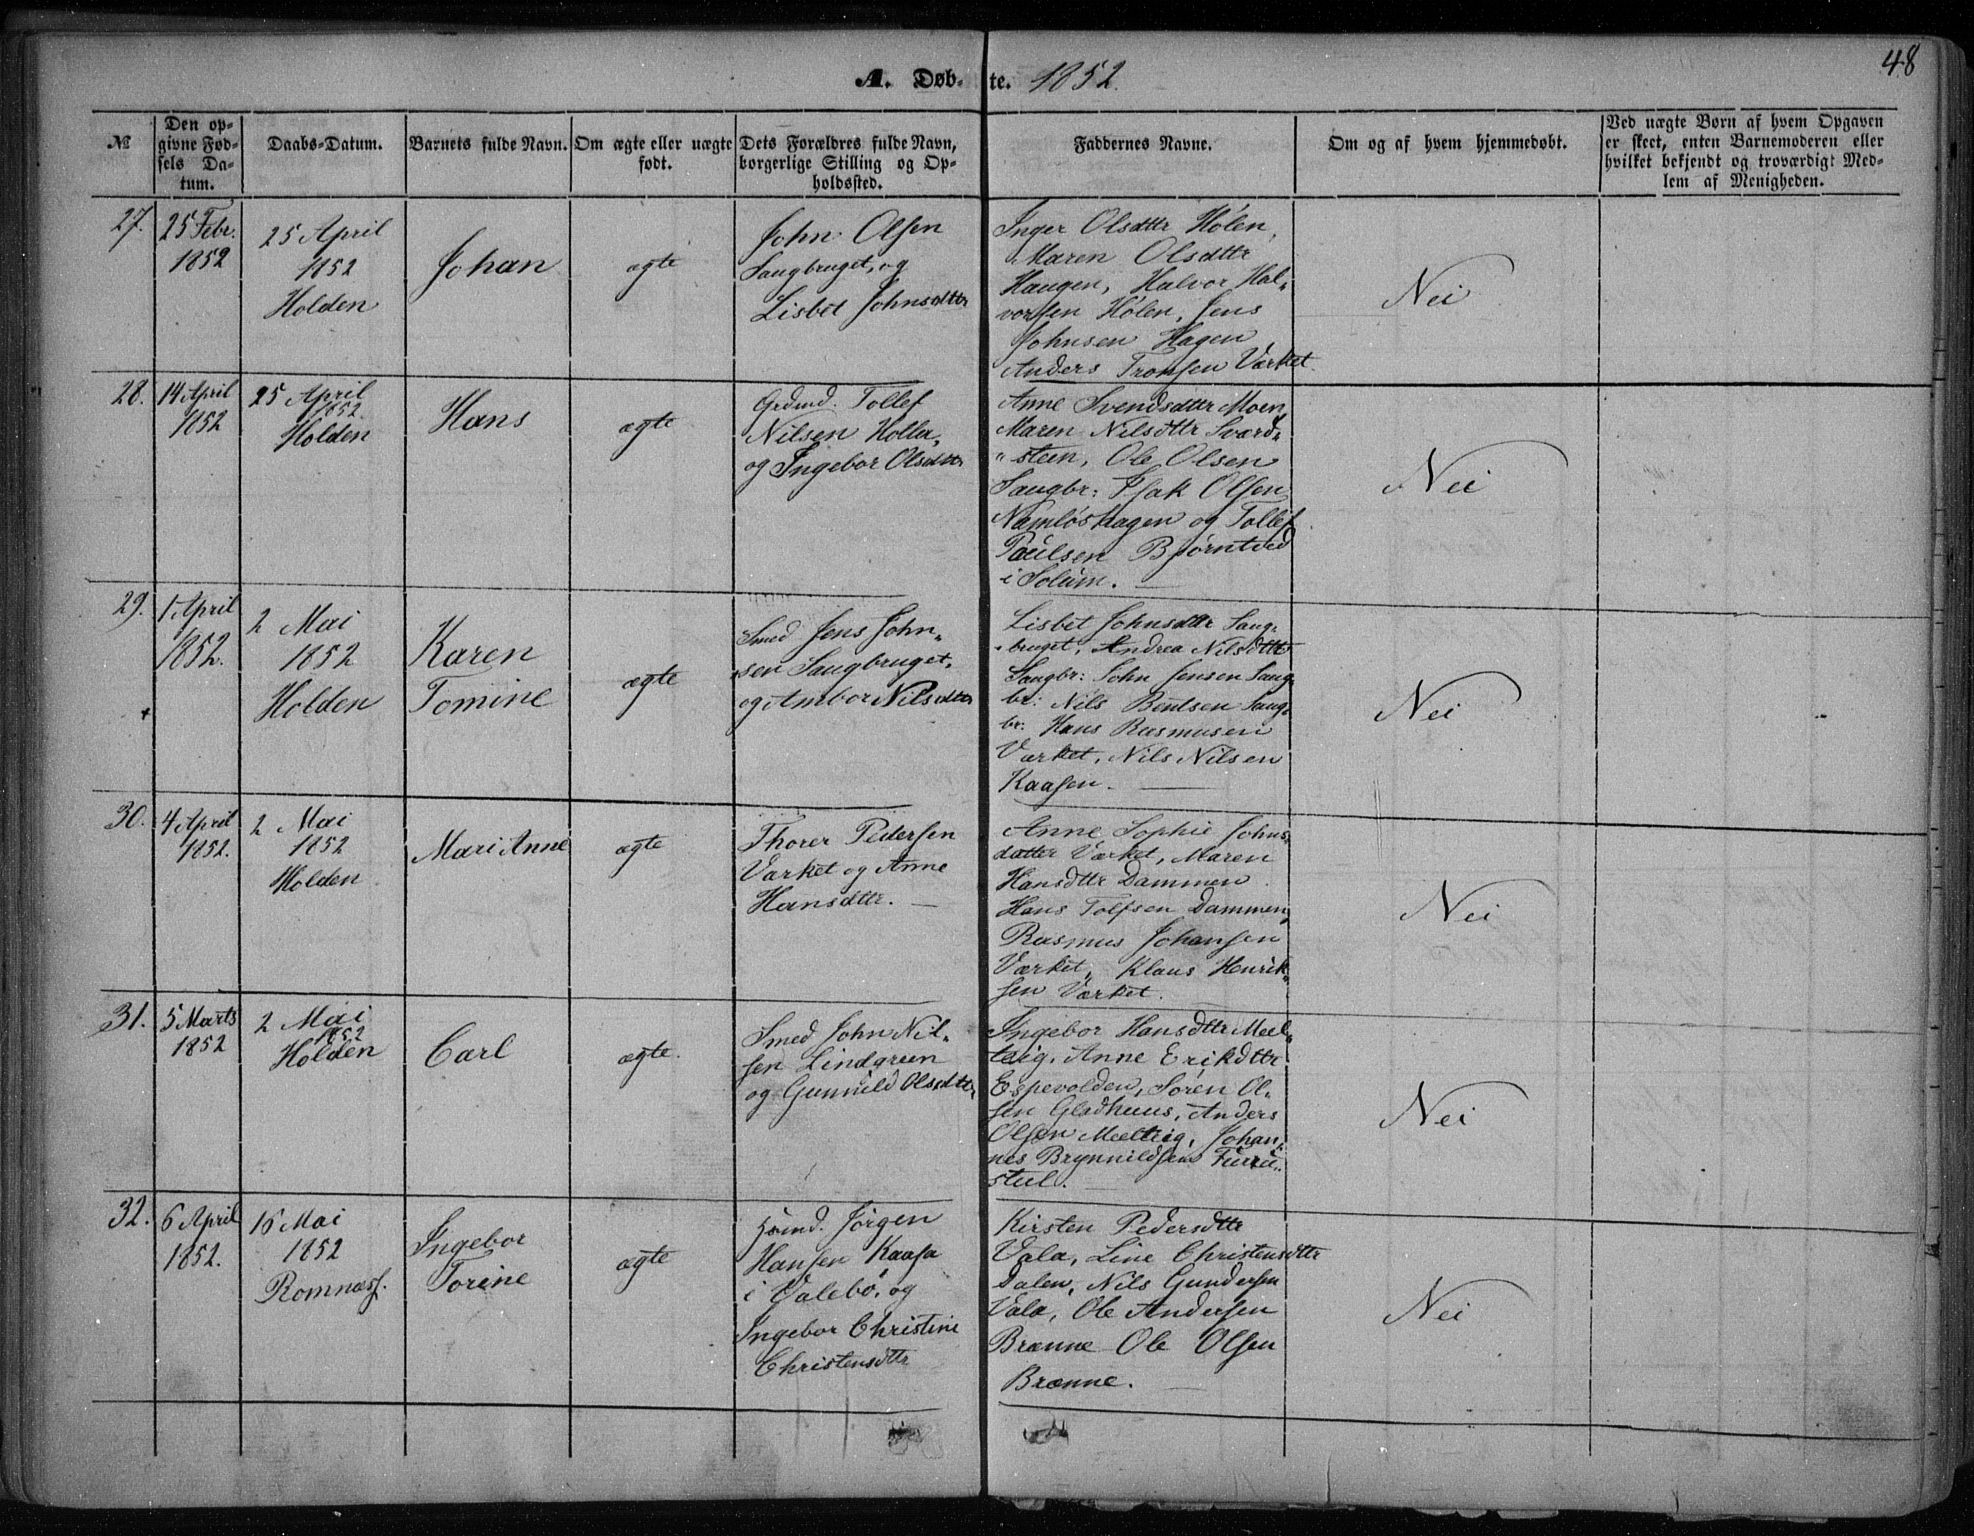 48
A. Døb- te. 1852.
№
Den op-
givne Fød-
sels Da-
tum.
Daabs-Datum.
Barnets fulde Navn.
Om ægte eller uægte
født.
Dets Forældres fulde Navn,
borgerlige Stilling og Op-
holdssted.
Faddernes Navne.
Om og af hvem hjemmedøbt.
Ved uægte Børn af hvem Opgaven
er skeet, enten Barnemoderen eller
hvilket bekjendt og troværdigt Med-
lem af Menigheden.
27.
25 Febr.
1852
25 April
1852
Holden
Johan
ægte
John Olsen
Saugbruget, og
Lisbet Johnsdttr
Inger Olsdttr Hølen,
Maren Olsdttr
Haugen, Halvor Hal-
vorsen Hølen, Jens
Johnsen Hagen
Anders Tronsen Værket.
Nei
28.
14 April
1852
25 April
1852
Holden
Hans
ægte
Grdmd. Tollef
Nilsen Holla,
og Ingebor Olsdttr
Anne Svendsdttr Moen,
Maren Nilsdttr Sværd-
-steen, Ole Olsen
Saugbr: Isak Olsen
Namløshagen og Tollef
Paulsen Bjørntved
i Solum.
Nei
29.
1 April
1852.
2 Mai
1852
Holden
Karen
Tomine
ægte
Smed Jens John-
sen Saugbruget,
og Ambor Nilsdttr
Lisbet Johnsdttr Saug-
-bruget, Andrea Nilsdttr
Saugbr: John Jensen Saug-
br: Nils Bentsen Saug-
br: Hans Rasmusen
Værket, Nils Nilsen
Kaasen.
Nei
30.
4 April
1852.
2 Mai
1852
Holden
Mari Anne
ægte
Thorer Pedersen
Værket og Anne
Hansdttr.
Anne Sophie Johns-
datter Værket, Maren
Hansdttr Dammen
Hans Tolfsen Dammen,
Rasmus Johansen
Værket, Klaus Henrik-
sen Værket.
Nei
31.
5 Marts
1852
2 Mai
1852
Holden
Carl
ægte.
Smed John Nil-
sen Lindgreen
og Gunnild Olsdttr
Ingebor Hansdttr Meel-
teig, Anne Erikdttr
Espevolden, Søren Ol-
sen Gladhuus, Anders
Olsen Meelteig, Johan-
nes Brynnildsen Furru-
stul.
Nei
32.
6 April
1852.
16 Mai
1852
Romnæss.
Ingebor
Torine
ægte
Jørgen
Hansen Kaasa
i Valebø, og
Ingebor Christine
Christensdttr
Kirsten Pedersdttr
Vala, Line Christensdttr
Dalen, Nils Gundersen
Vala, Ole Andersen
Brænne Ole Olsen
Brænne.
Nei